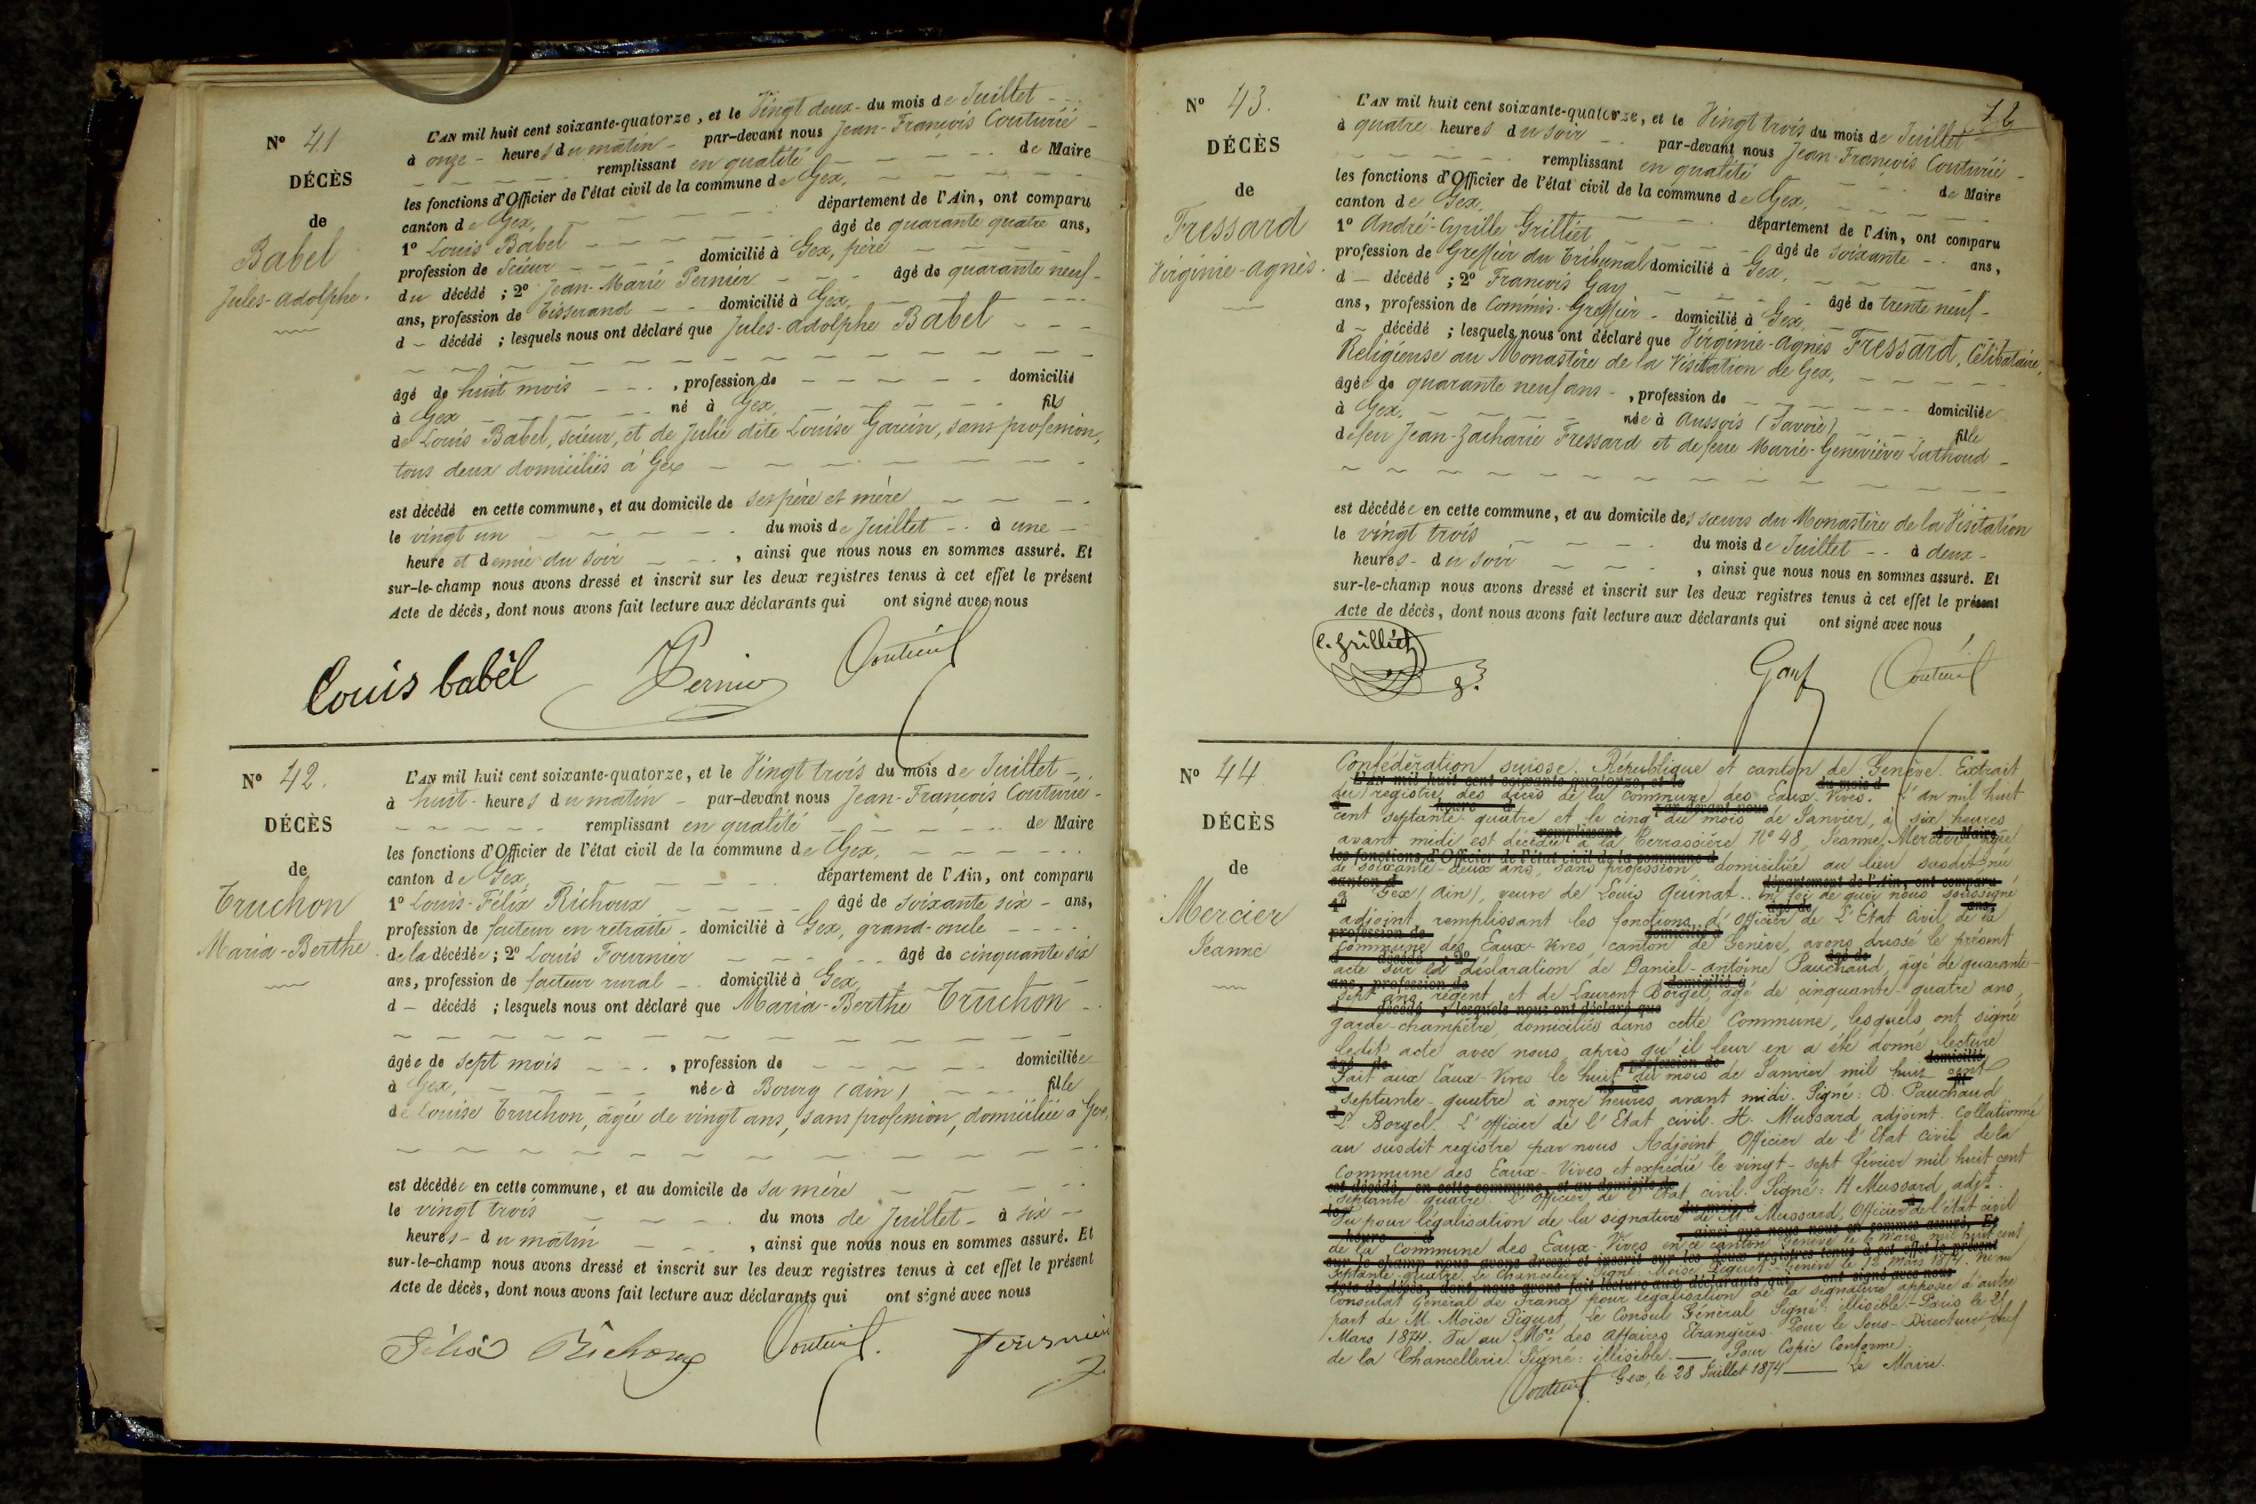 N° 41
DÉCÈS
de
Babel
Jules-adolphe.
L'AN mil huit cent soixante-quatorze, et le Vingt deux du mois de Juillet
à onze heures du matin par-devant nous Jean-François Couturié
remplissant en qualité de Maire
les fonctions d'Officier de l'état civil de la commune de Gex,
canton de Gex, département de l'Ain, ont comparu
1° Louis Babel âgé de quarante quatre ans,
profession de Scieur domicilié à Gex, père
du décédé ; 2° Jean-Marie Pernier âgé de quarante neuf
ans, profession de Tisserand domicilié à Gex,
d décédé ; lesquels nous ont déclaré que Jules-adolphe Babel
âgé de huit mois , profession de domicilié
à Gex né à Gex, fils
de Louis Babel, scieur, et de Julie dite Louise Garcin, sans profession,
tous deux domiciliés à Gex
est décédé en cette commune, et au domicile de ses père et mère
le vingt un du mois de Juillet à une
heure et demie du soir , ainsi que nous nous en sommes assuré. Et
sur-le-champ nous avons dressé et inscrit sur les deux registres tenus à cet effet le présent
Acte de décès, dont nous avons fait lecture aux déclarants qui ont signé avec nous
Louis babèl Pernier Couturié
N° 42.
DÉCÈS
de
Truchon
Maria-Berthe
L'AN mil huit cent soixante-quatorze, et le Vingt trois du mois de Juillet
à huit heures du matin par-devant nous Jean-François Couturié
remplissant en qualité de Maire
les fonctions d'Officier de l'état civil de la commune de Gex,
canton de Gex, département de l'Ain, ont comparu
1° Louis-Félix Richoux âgé de soixante six ans,
profession de facteur en retraite domicilié à Gex, grand-oncle
de la décédée ; 2° Louis Fournier âgé de cinquante six
ans, profession de facteur rural domicilié à Gex,
d décédé ; lesquels nous ont déclaré que Maria-Berthe Truchon
âgée de sept mois , profession de domiciliée
à Gex, née à Bourg (Ain) fille
de Louise Truchon, âgée de vingt ans, sans profession, domiciliée à Gex,
est décédée en cette commune, et au domicile de sa mère
le vingt trois du mois de Juillet à six
heures du matin , ainsi que nous nous en sommes assuré. Et
sur-le-champ nous avons dressé et inscrit sur les deux registres tenus à cet effet le présent
Acte de décès, dont nous avons fait lecture aux déclarants qui ont signé avec nous
Félix Richoux Couturié. Fournier
12
N° 43.
DÉCÈS
de
Fressard
Virginie-agnès.
L'AN mil huit cent soixante-quatorze, et le Vingt trois du mois de Juillet
à quatre heures du soir par-devant nous Jean-François Couturié
remplissant en qualité de Maire
les fonctions d'Officier de l'état civil de la commune de Gex,
canton de Gex, département de l'Ain, ont comparu
1° André-Cyrille Grilliet âgé de soixante ans,
profession de Greffier du Tribunal domicilié à Gex,
d décédé ; 2° François Gay âgé de trente neuf
ans, profession de Commis-Greffier domicilié à Gex,
d décédé ; lesquels nous ont déclaré que Virginie-agnès Fressard, Célibataire,
Religieuse au Monastère de la Visitation de Gex,
âgée de quarante neuf ans , profession de domiciliée
à Gex, née à Aussois (Savoie) fille
de feu Jean-Zacharie Fressard et de feue Marie-Geneviève Lathoud
est décédée en cette commune, et au domicile des sœurs du Monastère de la Visitation
le vingt trois du mois de Juillet à deux
heures du soir , ainsi que nous nous en sommes assuré. Et
sur-le-champ nous avons dressé et inscrit sur les deux registres tenus à cet effet le présent
Acte de décès, dont nous avons fait lecture aux déclarants qui ont signé avec nous
C. Grilliet Gay Couturié
N° 44
DÉCÈS
de
Mercier
Jeanne
Confédération suisse. République et canton de Genève. Extrait
du registre des décès de la Commune des Eaux-Vives. L'an mil huit
cent septante-quatre et le cinq du mois de Janvier, à six heures
avant midi est décédée à la Terrassière, N° 48, Jeanne Mercier âgée
de soixante-deux ans, sans profession domiciliée au lieu susdit née
à Gex (Ain), veuve de Louis Quinat. En foi de quoi nous soussigné
adjoint remplissant les fonctions d'Officier de l'Etat Civil de la
Commune des Eaux-Vives, canton de Genève, avons dressé le présent
acte sur la déclaration de Daniel-antoine Pauchaud, âgé de quarante-
sept ans régent et de Laurent Borgel, âgé de cinquante-quatre ans,
garde-champêtre, domiciliés dans cette Commune, lesquels ont signé
ledit acte avec nous après qu'il leur en a été donné lecture
Fait aux Eaux-Vives le huit du mois de Janvier mil huit cent
septante-quatre à onze heures avant midi. Signé : D. Pauchaud
L. Borgel. L'officier de l'Etat civil. H. Mussard adjoint. Collationné
au susdit registre par nous Adjoint, Officier de l'Etat civil de la
Commune des Eaux-Vives et expédié le vingt-sept février mil huit cent
septante quatre. L'officier de l'Etat civil. Signé : H Mussard, adjt.
Vu pour légalisation de la signature de M. Mussard, Officier de l'état civil
de la Commune des Eaux-Vives en ce canton Genève le 6 Mars mil huit cent
septante-quatre. Le Chancelier Signé Moïse Piguet. Genève le 12 Mars 1874. Vu au
Consulat Général de France pour légalisation de la signature apposée d'autre
part de M. Moïse Piguet, Le Consul Général Signé : illisible. Paris le 21
Mars 1874. Vu au Mre des Affaires Etrangères. Pour le Sous-Directeur, chef
de la Chancellerie. Signé : illisible. Pour Copie Conforme.
Gex, le 28 Juillet 1874 Le Maire.
Couturié